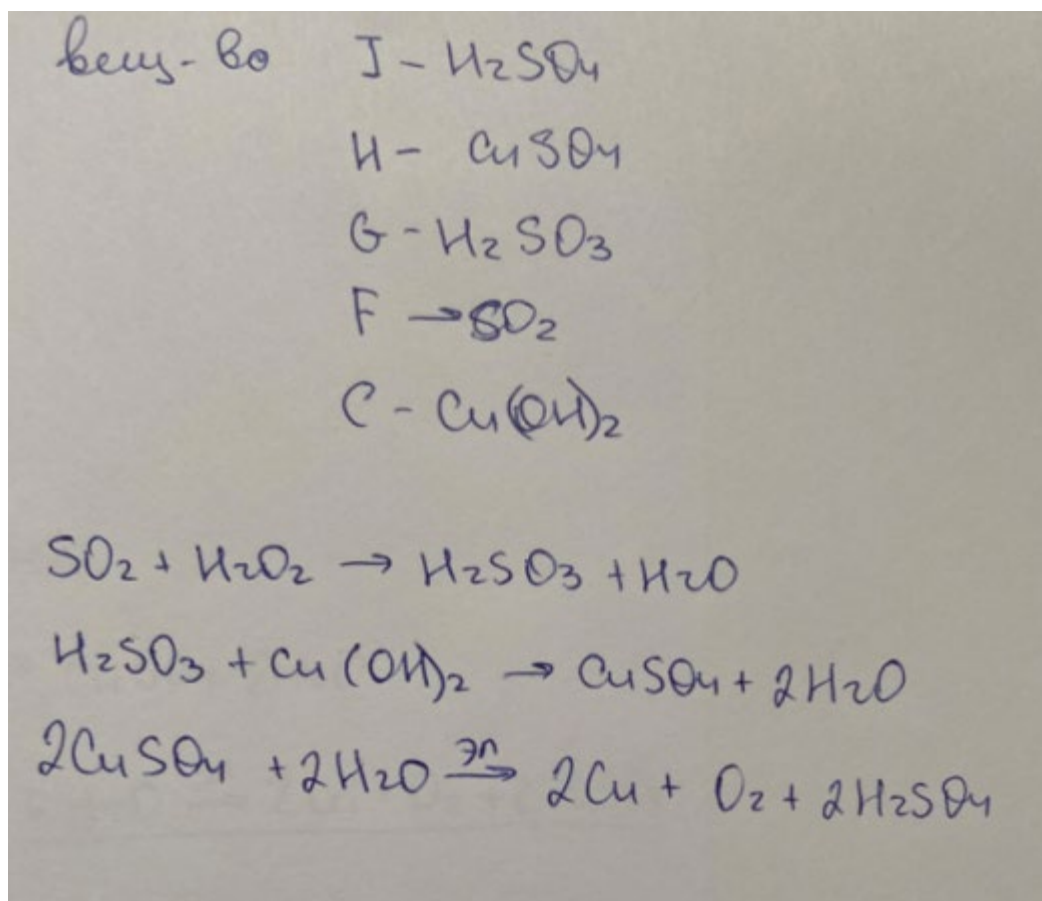 вещ-во J - H₂SO₄
H - CuSO₄
G - H₂SO₃
F → SO₂
C - Cu(OH)₂
SO₂ + H₂O₂ → H₂SO₃ + H₂O
H₂SO₃ + Cu(OH)₂ → CuSO₄ + 2H₂O
2CuSO₄ + 2H₂O эл→ 2Cu + O₂ + 2H₂SO₄